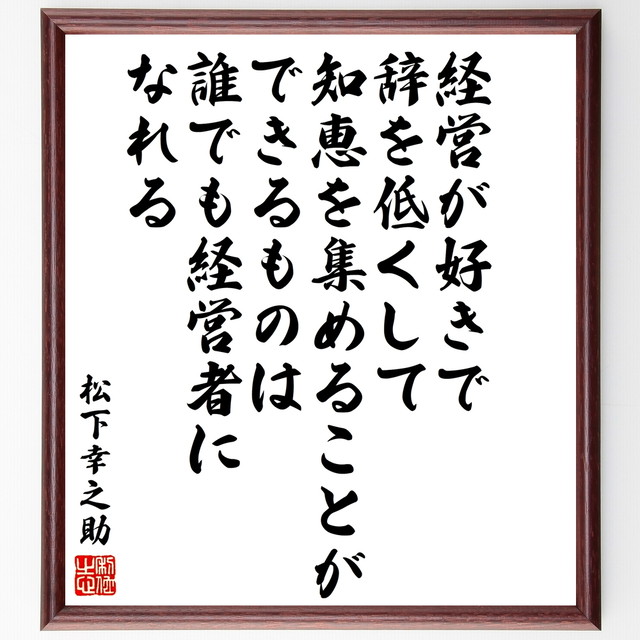 経営が好きで
辞を低くして
知恵を集めることが
できるものは
誰でも経営者に
なれる
松下幸之助